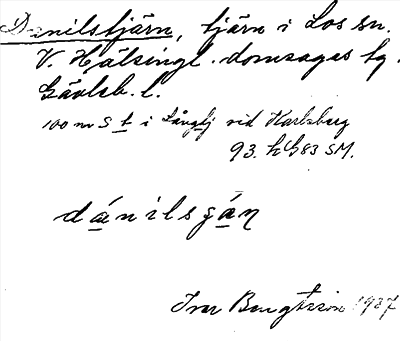 Danilstjärn, tjärn i Los sn.
V. Hälsingl. domsagas tg.
Gävleb. l.
100 m S t i Långtj vid Karlsberg
93. h G 83 SM.
dánilsʂán
Ivar Bengtsson 1937